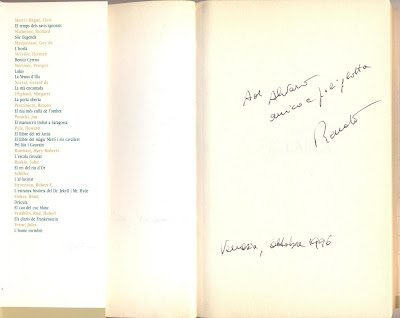 Martí i Bagué, Elisi
El temps dels savis ignorants
Matheson, Richard
Sóc llegenda
Maupassant, Guy de
L'horlà
Melville, Herman
Benito Cereno
Mérimée, Prosper
Lokis
La Venus d'Illa
Nerval, Gérard de
La mà encantada
Oliphant, Margaret
La porta oberta
Pestriniero, Renato
El nus més enllà de l'ombra
Potocki, Jan
El manuscrit trobat a Saragossa
Pyle, Howard
El llibre del rei Artús
El llibre del màgic Merlí i els cavallers
Pel·lias i Gaueain
Rinehart, Mary Roberts
L'escala circular
Ruskin, John
El rei del riu d'Or
Schiller
Stevenson, Robert L.
L'estranya història del Dr. Jekyll i Mr. Hyde
Stoker, Bram
Dràcula
El cau del cuc blanc
Verne, Jules
L'home invisible
Ad Alvaro
amico e poliglotta
Renato
Venezia, ottobre 1996